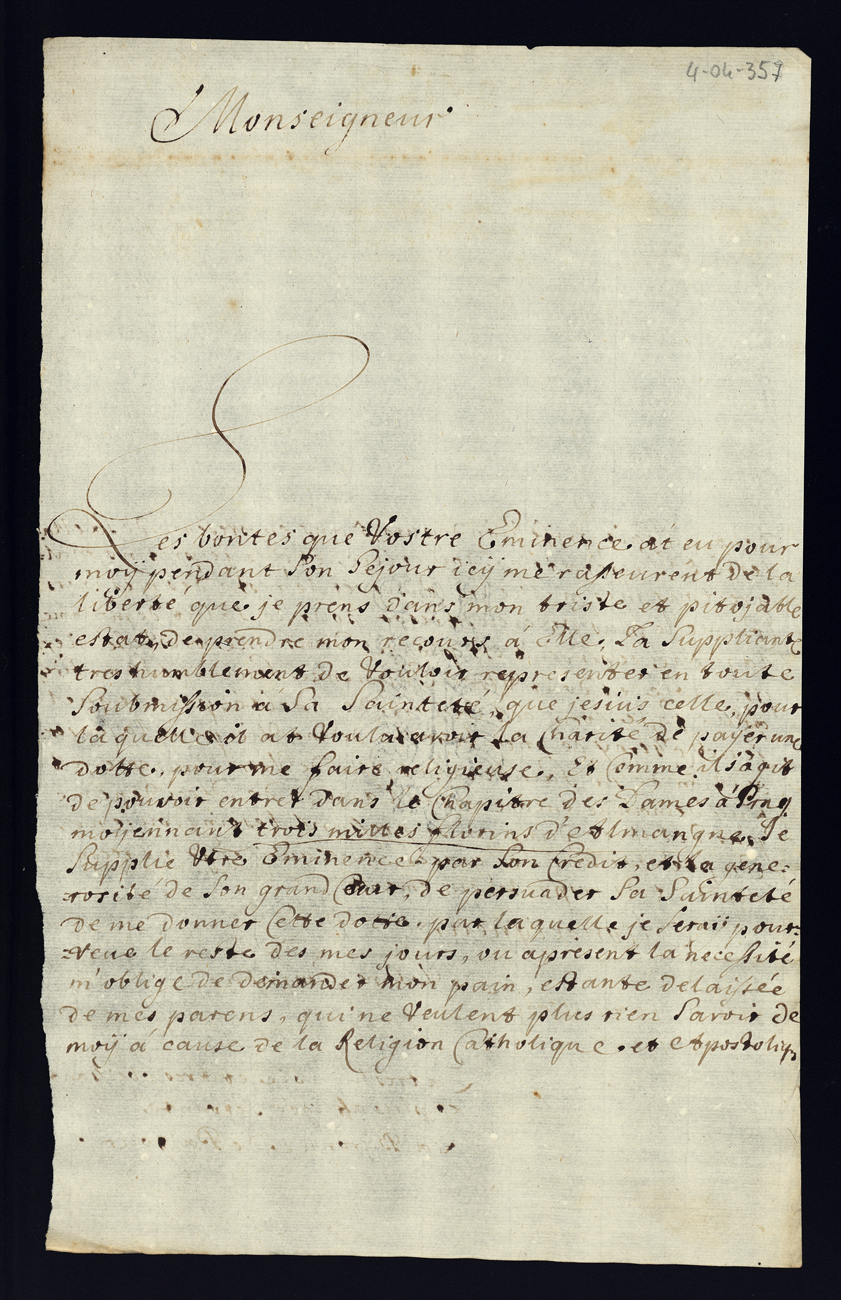 4-04-357
Monseigneur
Les bontes que Vostre Eminence at eu pour
moÿ pendant Son Sejour icÿ me rasseurent de la
liberté que je prens dans mon triste et pitojable
estat, de prendre mon recours á Elle, La Suppliante
tres humblement de Vouloir representer en toute
Soubmission á Sa Sainteté, que je suis celle, pour
laquelle il at Voulu avoir la Charité de payér une
dotte, pour me faire religieuse, Et Comme il s'agit
de pouvoir entrer dans le Chapitre des Dames á Prag
moÿennant trois milles florins d'Almangne, Je
Supplie Vtre Eminence par Son Credit, et la gene:
rosité de Son grand Cœur, de persuader Sa Sainteté
de me donner Cette dotte, par laquelle je Seraÿ pour:
veue le reste des mes jours, ou apresent la necessité
m'oblige de demander mon pain, estante delaissée
de mes parens, qui ne Veulent plus rien Savoir de
moÿ a cause de la Religion Catholique et Apostoliq